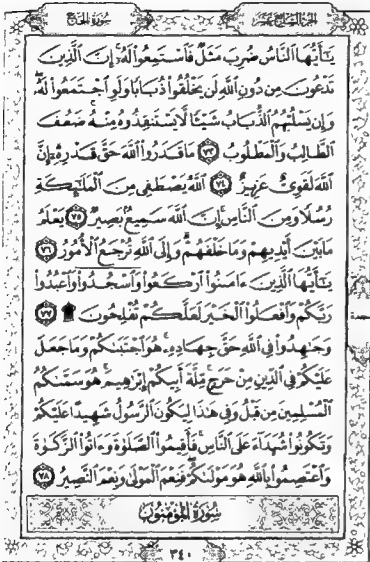 سُورَةُ الحَجِّ
الجُزْءُ السَّابِعَ عَشَرَ
يَـٰٓأَيُّهَا ٱلنَّاسُ ضُرِبَ مَثَلٌ فَٱسْتَمِعُوا۟ لَهُۥٓ ۚ إِنَّ ٱلَّذِينَ
تَدْعُونَ مِن دُونِ ٱللَّهِ لَن يَخْلُقُوا۟ ذُبَابًا وَلَوِ ٱجْتَمَعُوا۟ لَهُۥ ۖ
وَإِن يَسْلُبْهُمُ ٱلذُّبَابُ شَيْـًٔا لَّا يَسْتَنقِذُوهُ مِنْهُ ۚ ضَعُفَ
ٱلطَّالِبُ وَٱلْمَطْلُوبُ ٧٣ مَا قَدَرُوا۟ ٱللَّهَ حَقَّ قَدْرِهِۦٓ ۗ إِنَّ
ٱللَّهَ لَقَوِىٌّ عَزِيزٌ ٧٤ ٱللَّهُ يَصْطَفِى مِنَ ٱلْمَلَـٰٓئِكَةِ
رُسُلًا وَمِنَ ٱلنَّاسِ ۚ إِنَّ ٱللَّهَ سَمِيعٌۢ بَصِيرٌ ٧٥ يَعْلَمُ
مَا بَيْنَ أَيْدِيهِمْ وَمَا خَلْفَهُمْ ۗ وَإِلَى ٱللَّهِ تُرْجَعُ ٱلْأُمُورُ ٧٦
يَـٰٓأَيُّهَا ٱلَّذِينَ ءَامَنُوا۟ ٱرْكَعُوا۟ وَٱسْجُدُوا۟ وَٱعْبُدُوا۟
رَبَّكُمْ وَٱفْعَلُوا۟ ٱلْخَيْرَ لَعَلَّكُمْ تُفْلِحُونَ ۩ ٧٧
وَجَـٰهِدُوا۟ فِى ٱللَّهِ حَقَّ جِهَادِهِۦ ۚ هُوَ ٱجْتَبَىٰكُمْ وَمَا جَعَلَ
عَلَيْكُمْ فِى ٱلدِّينِ مِنْ حَرَجٍ ۚ مِّلَّةَ أَبِيكُمْ إِبْرَٰهِيمَ ۚ هُوَ سَمَّىٰكُمُ
ٱلْمُسْلِمِينَ مِن قَبْلُ وَفِى هَـٰذَا لِيَكُونَ ٱلرَّسُولُ شَهِيدًا عَلَيْكُمْ
وَتَكُونُوا۟ شُهَدَآءَ عَلَى ٱلنَّاسِ ۚ فَأَقِيمُوا۟ ٱلصَّلَوٰةَ وَءَاتُوا۟ ٱلزَّكَوٰةَ
وَٱعْتَصِمُوا۟ بِٱللَّهِ هُوَ مَوْلَىٰكُمْ ۖ فَنِعْمَ ٱلْمَوْلَىٰ وَنِعْمَ ٱلنَّصِيرُ ٧٨
سُورَةُ المُؤْمِنُونَ
٣٤١